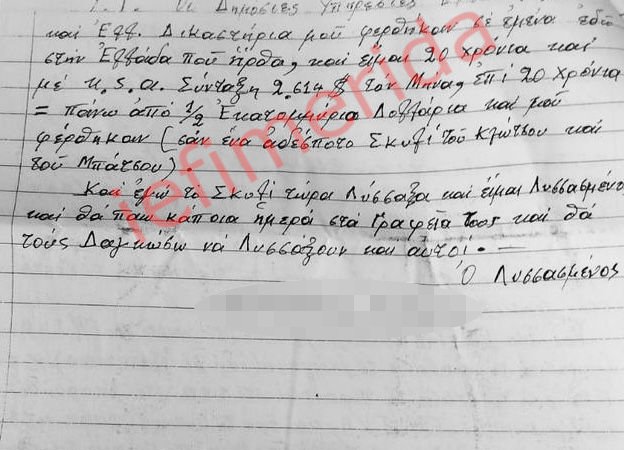 1.1. Οἱ Δημόσιες Ὑπηρεσίες
καί Ἑλλ. Δικαστήρια μοῦ φερθηκαν σέ ἐμένα ἐδῶ
στήν Ἑλλάδα πού ἦρθα, καί εἶμαι 20 χρόνια καί
μέ U.S.A. Σύνταξη 2.614 $ τόν Μηνα, ἐπί 20 χρόνια
= πάνω ἀπό 1/2 Ἑκατομμύρια Δολλάρια και μοῦ
φερθηκαν (σάν ἕνα ἀδέσποτο Σκυλί τοῦ Κλώτσου και
τοῦ Μπάτσου).
Και ἐγώ τό Σκυλί τώρα Λύσσαξα και εἶμαι Λυσσασμένο
και θά πάω κάποια ημερά στά Γραφεῖα τους και θά
τούς Δαγκώσω νά Λυσσάξουν και αὐτοί. —
Ὁ Λυσσασμένος
refimerida